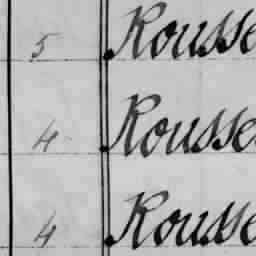 5 Rousse
4 Rousse
4 Rousse